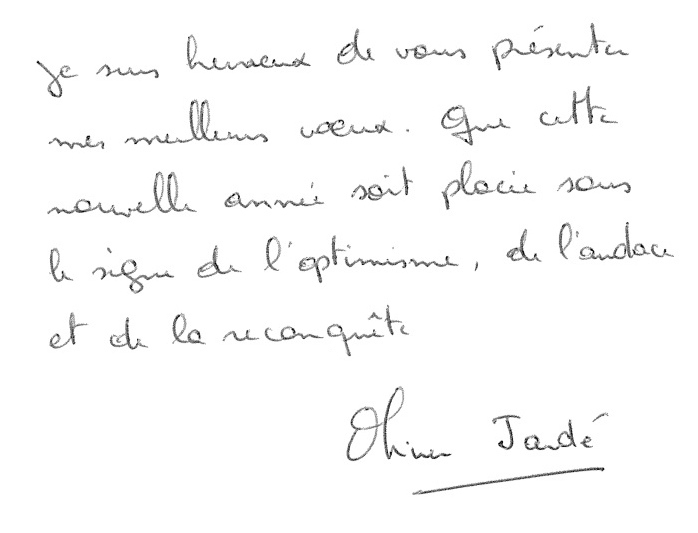 Je suis heureux de vous présenter
mes meilleurs vœux. Que cette
nouvelle année soit placée sous
le signe de l'optimisme, de l'audace
et de la reconquête
Olivier Jardé